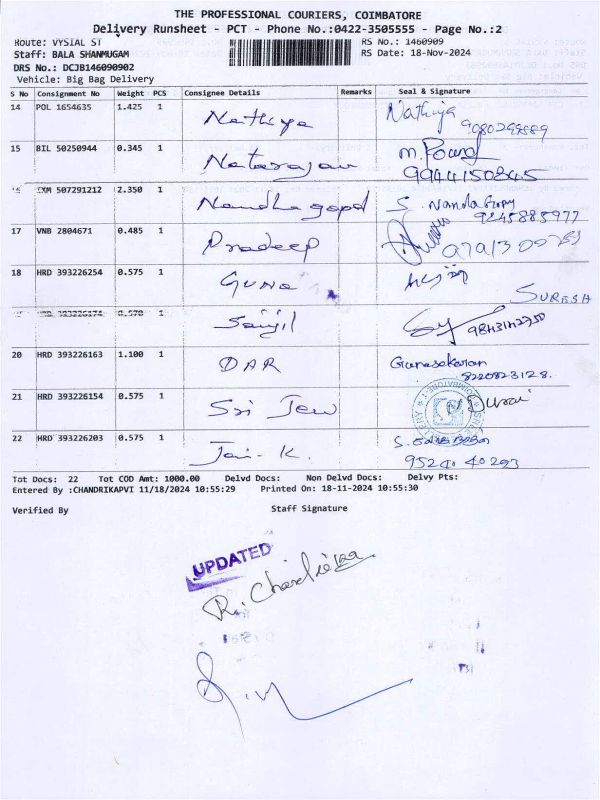 THE PROFESSIONAL COURIERS, COIMBATORE
Delivery Runsheet - PCT - Phone No.:0422-3505555 - Page No.:2
Route: VYSIAL ST RS No.: 1460909
Staff: BALA SHANMUGAM RS Date: 18-Nov-2024
DRS No.: DCJB146090902
Vehicle: Big Bag Delivery
S No Consignment No Weight PCS Consignee Details Remarks Seal & Signature
14 POL 1654635 1.425 1 Nathiya Nathiya
15 BIL 50250944 0.345 1 Natarajan
9944150845
CXM 507291212 2.350 1 Nandha gopal S. Nandagopy
9245885977
17 VNB 2804671 0.485 1 Pradeep
18 HRD 393226254 0.575 1 Guna
SURESH
1
20 HRD 393226163 1.100 1 DAR Gunasekaran
8220823128.
21 HRD 393226154 0.575 1 Sri Jew Durai
22 HRD 393226203 0.575 1 Jai - K.
95240 40293
Tot Docs: 22 Tot COD Amt: 1000.00 Delvd Docs: Non Delvd Docs: Delvy Pts:
Entered By :CHANDRIKAPVI 11/18/2024 10:55:29 Printed On: 18-11-2024 10:55:30
Verified By Staff Signature
UPDATED
R. Chandrika